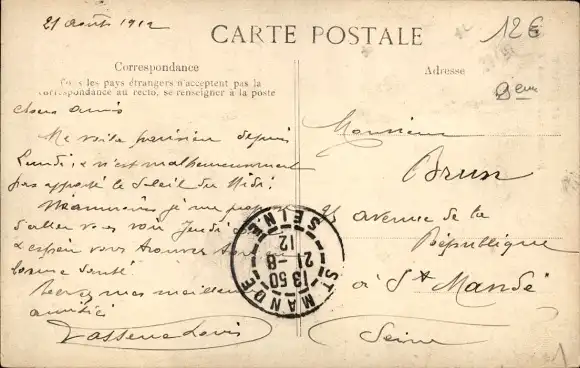 21 août 1912
CARTE POSTALE
12€
Correspondance
Tous les pays étrangers n'acceptent pas la
correspondance au recto, se renseigner à la poste
Adresse
chers amis
Me voila parisien depuis
Lundi, n'est malheureusement
pas apporté le soleil du Midi
Néanmoins je me propose
d'aller vous voir Jeudi
espère vous trouver
bonne santé
Recevez mes meilleures
amitiés
Monsieur
Brun
25 avenue de la
République
à St Mandé
Seine
ST MANDÉ
13 50
21 -8
12
SEINE
1